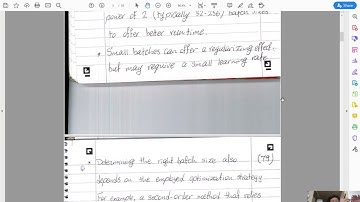 power of 2 (typically 32-256) batch sizes
to offer better runtime.
* Small batches can offer a regularizing effect
but may require a small learning rate.
* Determining the right batch size also (79)
depends on the employed optimization strategy
For example, a second-order method that relies